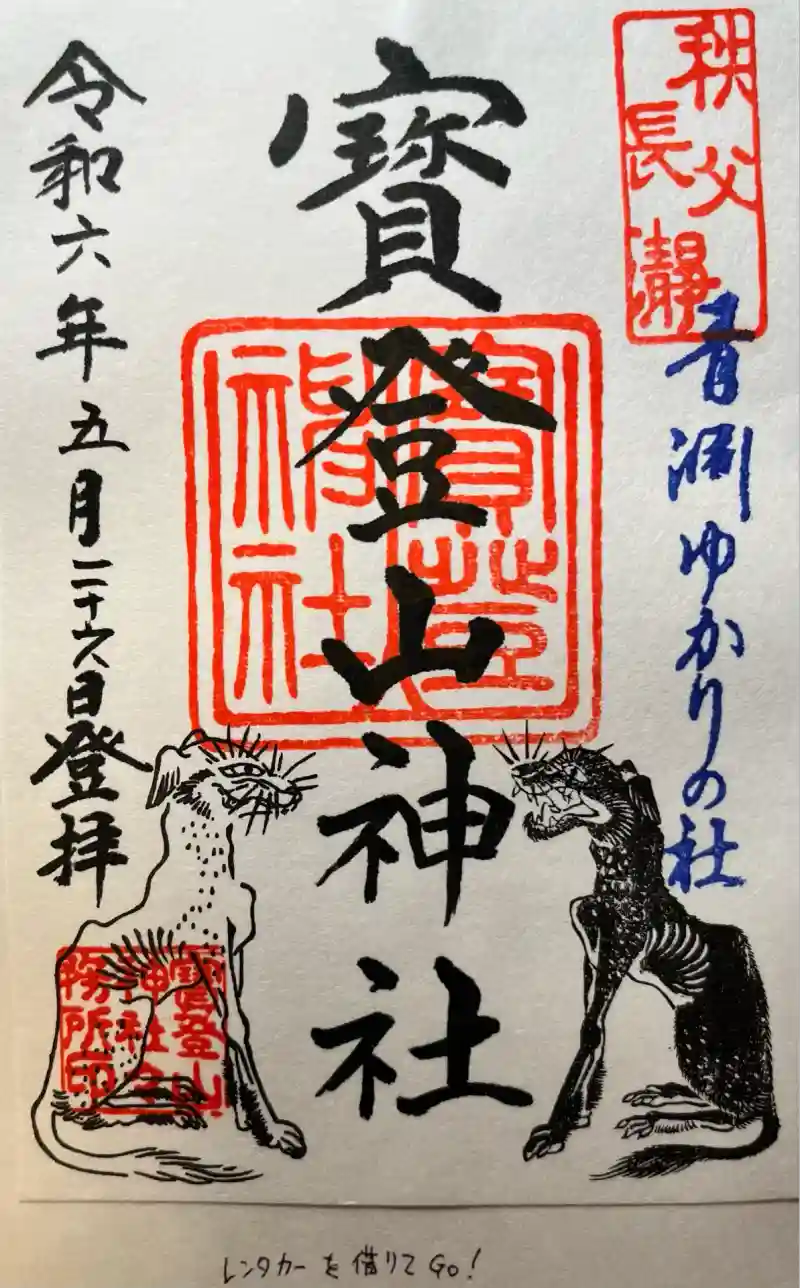 秩父
長瀞
青淵ゆかりの社
寳登山神社
寳登
山神社
令和六年五月二十六日登拝
寳登山
神社社
務所印
レンタカーを借りてGo!